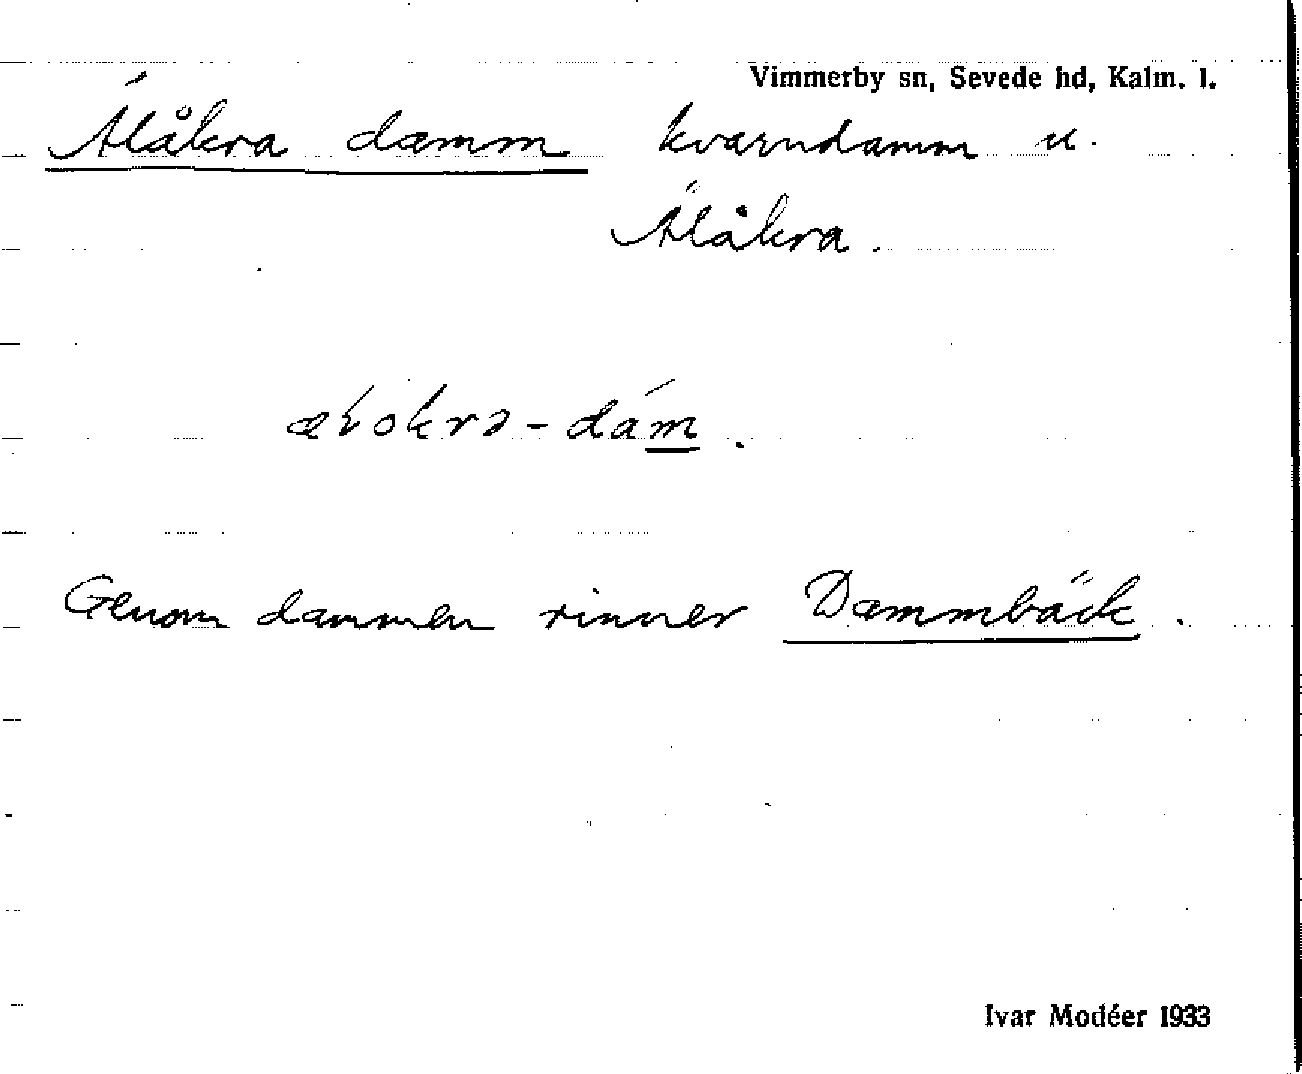 Vimmerby sn, Sevede hd, Kalm. l.
Älåkra damm kvarndamm u.
Älåkra.
Genom dammen rinner Dammbäck.
Ivar Modéer 1933